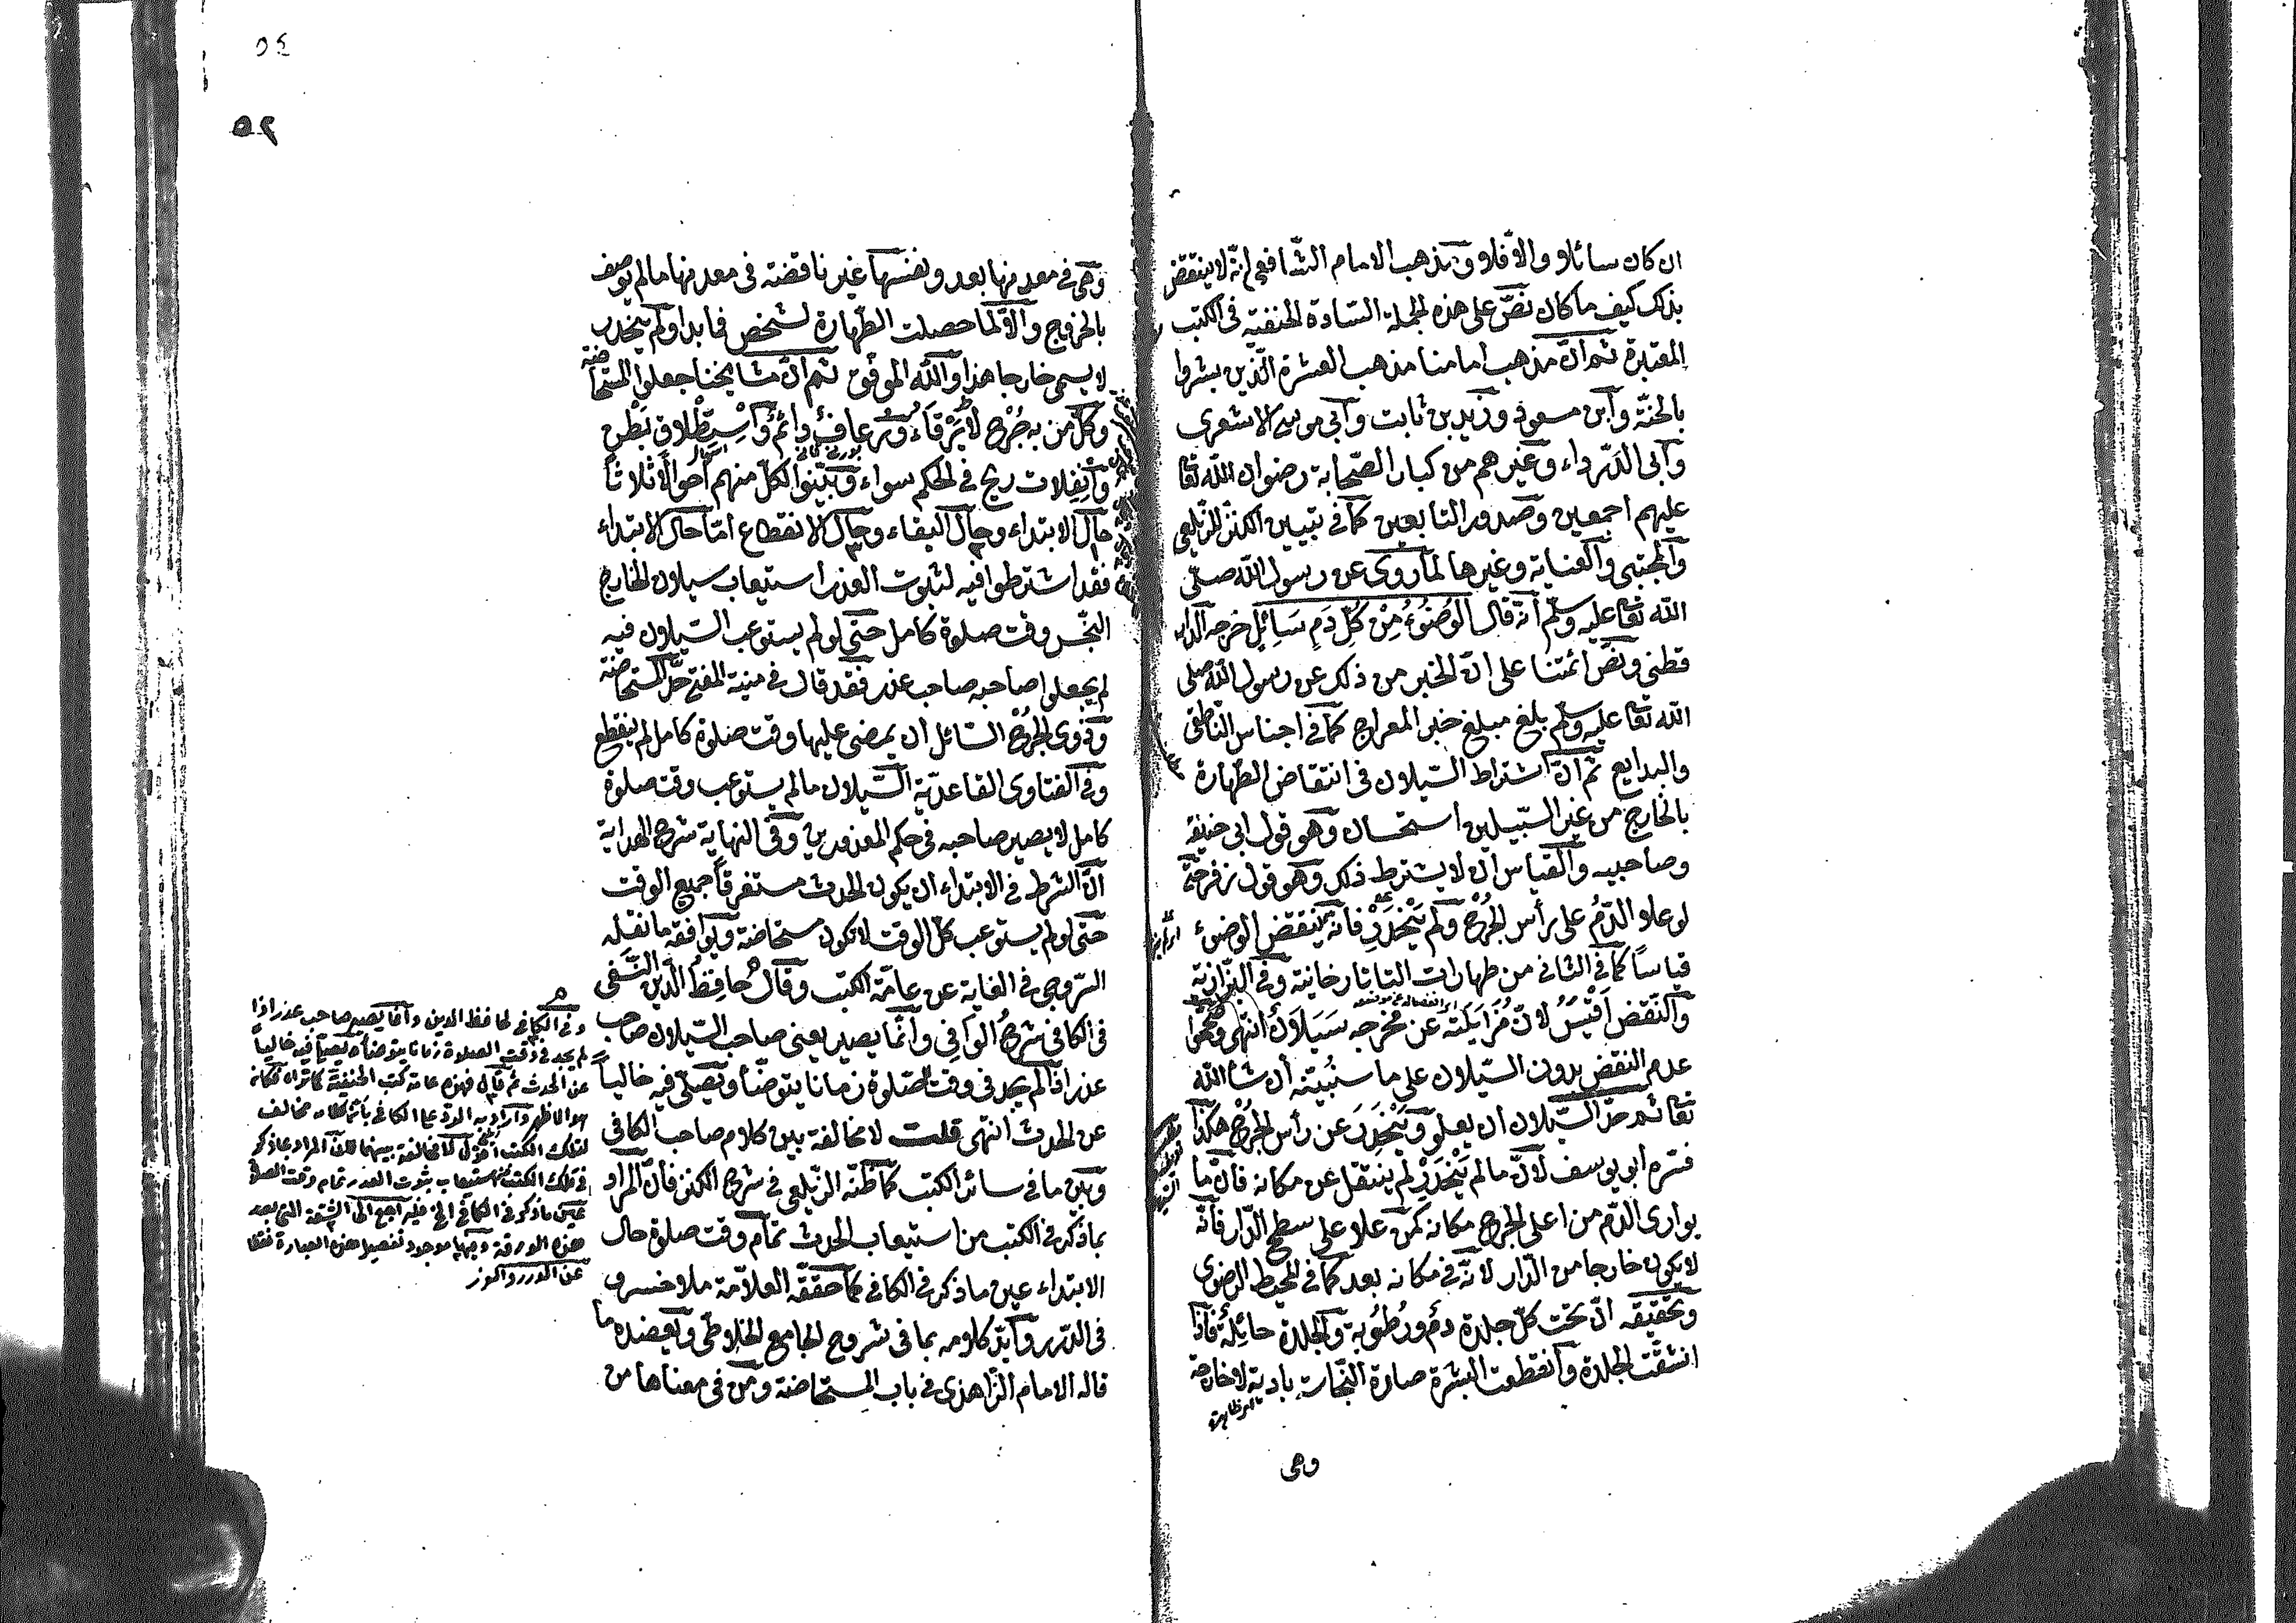 ان كان سائلا والا فلا ومذهب الامام الشافعي انه لا ينقض
بذلك كيف ما كان نص على هذه الجملة السادة الحنفية فى الكتب
المعتبرة ثم ان مذهب امامنا مذهب العشرة الذين بشروا
بالجنة وابن مسعود وزيد بن ثابت وابى موسى الاشعرى
وابى الدرداء وغيرهم من كبار الصحابة رضوان الله تعا
عليهم اجمعين وصدور التابعين كما فى تبيين الكنز للزيلعى
والمجتبى والعناية وغيرها لما روى عن رسول الله صلى
الله تعا عليه وسلم انه قال الوُضُوءُ مِنْ كُلِّ دَمٍ سَائِلٍ خرجه الدار
قطنى ونص ائمتنا على ان الخبر من ذلك عن رسول الله صلى
الله تعا عليه وسلم بلغ مبلغ خبر المعراج كما فى اجناس الناطفى
والبدايع ثم ان اشتراط السيلان فى انتقاض الطهارة
بالخارج من غير السبيلين استحسان وهو قول ابى حنيفة
وصاحبيه والقياس ان لا يشترط ذلك وهو قول زفر حتى
لو علا الدمُ على رأس الجُرْح ولم يَنْحَدِرْ فانه ينقض الوضوء
قياساً كما فى الثانى من طهارات التاتارخانية وفى البزازية
والنقض اَقْيَسُ لان مُزَايَلَتَهُ عن مخرجه سَيَلَانٌ انتهى وصححوا
عدم النقض بدون السيلان على ما سنُبيّنه ان شاء الله
تعا ثم حدّ السيلان ان يعلو ويَنْحَدِرَ عن رأس الجُرْح هكذا
فسره ابو يوسف لان ما لم يَنْحَدِرْ لم ينتقل عن مكانه فان ما
يوارى الدم من اعلى الجرح مكانه كمن علا على سطح الدار فانه
لا يكون خارجا من الدار لانه فى مكانه بعد كما فى المحيط الرضوى
وتحقيقه ان تحت كل جلدة دم ورُطُوبة والجلدة حائِلة فاذا
انشقت الجلدة وانقطعت البشرة صارة النجاسة بادية لا خارجة
وهى
وهى فى معدنها بعد ونفسها غير ناقضة فى معدنها ما لم يوصف
بالخروج والا لما حصلت الطهارة لشخص فما بدا ولم ينحدر
لا يسمى خارجا هذا والله الموفق ثم ان مشايخنا جعلوا المستحاضة
وكل من به جُرْح لا يَرْقَأُ ورعاف دائم واستطلاق بطن
وانفلات ريح فى الحكم سواء وبيّنوا لكل منهم احوالاً ثلاثاً
حال الابتداء وحال البقاء وحال الانقطاع اما حال الابتداء
فقد اشترطوا فيه لثبوت العذر استيعاب سيلان الخارج
النجس وقت صلوة كامل حتى لو لم يستوعب السيلان فيه
لم يجعلوا صاحبه صاحب عذر فقد قال فى منية المفتى حدّ المستحاضة
وذوى الجُرْح السائل ان يمضى عليها وقت صلوة كامل لم ينقطع
وفى الفتاوى القاعدية السيلان ما لم يستوعب وقت صلوة
كامل لا يصير صاحبه فى حكم المعذورين وفى النهاية شرح الهداية
ان الشرط فى الابتداء ان يكون الحدث مستغرقاً جميع الوقت
حتى لو لم يستوعب كل الوقت لا يكون مستحاضة ويوافقه ما نقله
السروجى فى الغاية عن عامة الكتب وقال حافظ الدين النسفى
فى الكافى شرح الوافى وانما يصير يعنى صاحب السيلان صاحب
عذر اذا لم يجد فى وقت الصلوة زمانا يتوضأ ويصلى فيه خالياً
عن الحدث انتهى قلت لا مخالفة بين كلام صاحب الكافى
وبين ما فى سائر الكتب كما ظنه الزيلعى فى شرح الكنز فان المراد
بما ذكر فى الكتب من استيعاب الحدث تمام وقت صلوة حال
الابتداء عين ما ذكر فى الكافى كما حققه العلامة ملا خسرو
فى الدرر وايّد كلامه بما فى شروح الجامع الخلاطى ويعضده ما
قاله الامام الزاهدى فى باب المستحاضة ومن فى معناها من
وفى الكافى لحافظ الدين وانما يصير صاحب عذر اذا
لم يجد فى وقت الصلاة زمانا يتوضأ ويصلى فيه خالياً
عن الحدث ثم قال فهذه عامة كتب الحنفية كما تراه فكان
هو الاظهر واراد به الرد على الكافى بان كلامه مخالف
لتلك الكتب اقول لا مخالفة بينهما فان المراد بما ذكر
فى تلك الكتب استيعاب ثبوت العذر تمام وقت الصلاة
عين ما ذكر فى الكافى الخ
هذه الورقة
عن الدرر والغرر
٥٤
٥٢